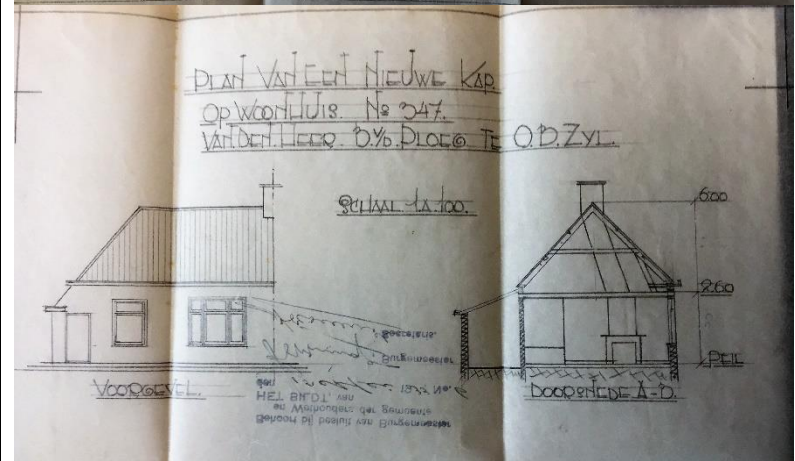 PLAN VAN EEN NIEUWE KAP.
OP WOONHUIS. No 347.
VAN DEN HEER. B. v/d. PLOEG TE O.B.ZYL.
SCHAAL 1 A 100.
6.00
2.60
PEIL
VOORGEVEL.
DOORSNEDE A-B.
Behoort bij besluit van Burgemeester
en Wethouders der gemeente
HET BILDT, van
den 19 No.
Burgemeester
Secretaris.